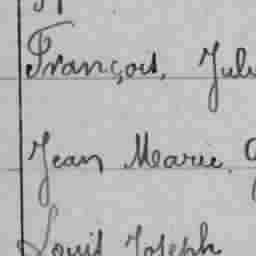 François, Jul
Jean Marie.
Louis Joseph